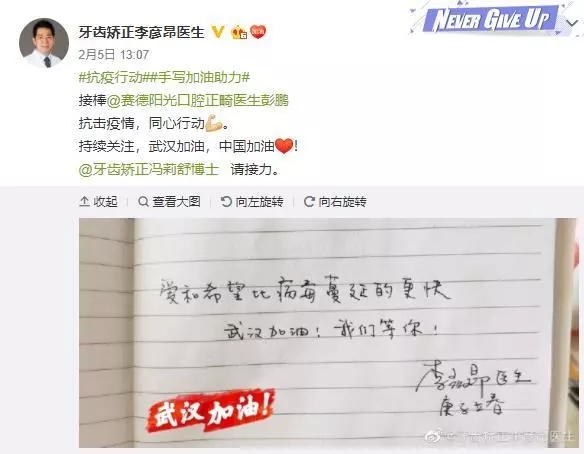 NEVER GIVE UP
牙齿矫正李彦昂医生
2月5日 13:07
#抗疫行动##手写加油助力#
接棒@赛德阳光口腔正畸医生彭鹏
抗击疫情，同心行动💪。
持续关注，武汉加油，中国加油❤！
@牙齿矫正冯莉舒博士 请接力。
收起 查看大图 向左旋转 向右旋转
爱和希望比病毒蔓延的更快
武汉加油！我们等你！
李彦昂医生
庚子立春
武汉加油！